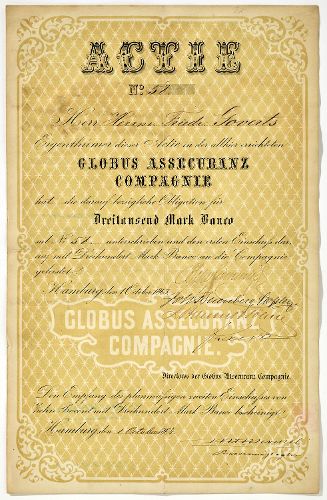 ACTIE
No. 52
Herr Herrm. Friedr. Goverts
Eigenthümer dieser Actie in der allhier errichteten
GLOBUS ASSECURANZ
COMPAGNIE
hat die darauf bezügliche Obligation für
Dreitausend Mark Banco
sub No. 52 unterschrieben und den ersten Einschuss darauf
mit Dreihundert Mark Banco an die Compagnie
geleistet.
Hamburg, den 1 October 1863.
GLOBUS ASSECURANZ
COMPAGNIE.
Directoren der Globus Assecuranz Compagnie.
Den Empfang des planmässigen zweiten Einschusses von
Zehn Procent mit Dreihundert Mark Banco bescheinigt
Hamburg, den 1 October 186